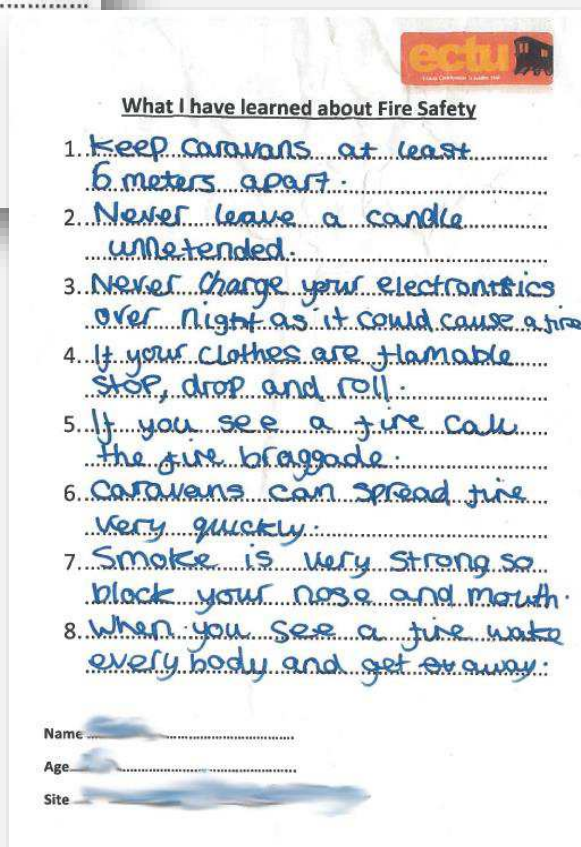 ectu
What I have learned about Fire Safety
1. Keep caravans at least
6 meters apart.
2. Never leave a candle
unnetended.
3. Never Charge your electrontics
over night as it could cause a fire
4. If your clothes are flamable
stop, drop and roll.
5. If you see a fire call
the fire braggade.
6. Caravans can spread fire
very quickly.
7. Smoke is very strong so
block your nose and mouth.
8. When you see a fire wake
everybody and get away.
Name
Age
Site